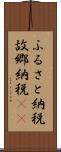 ふるさと納税
故郷納税